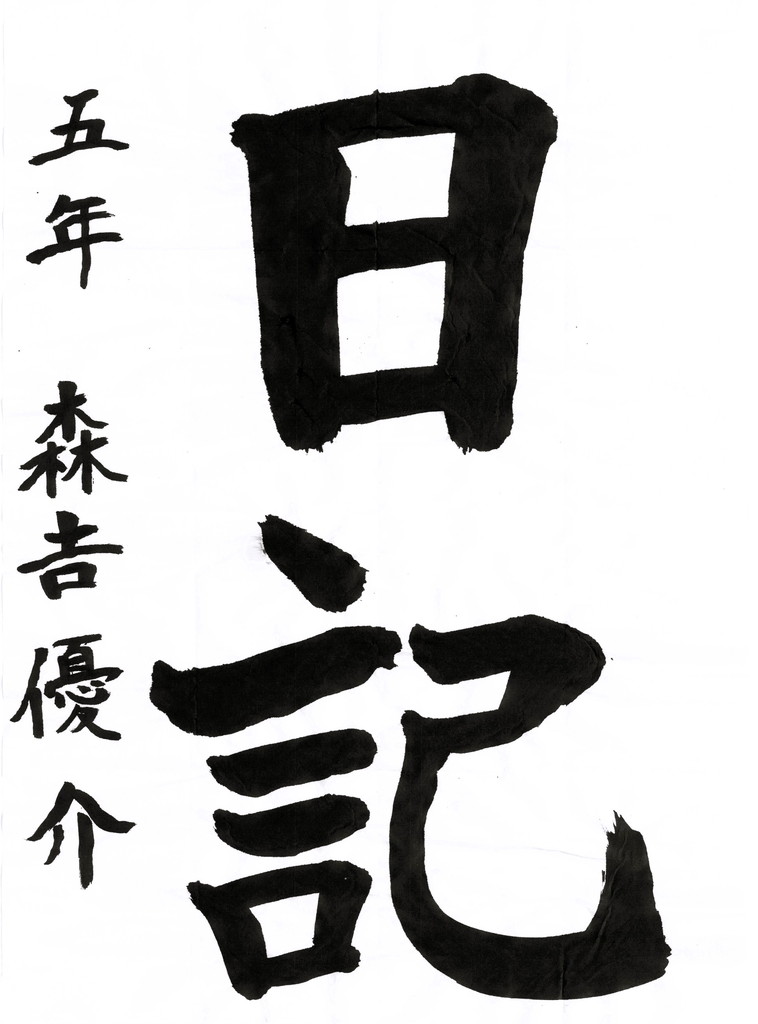 日記
五年 森吉優介